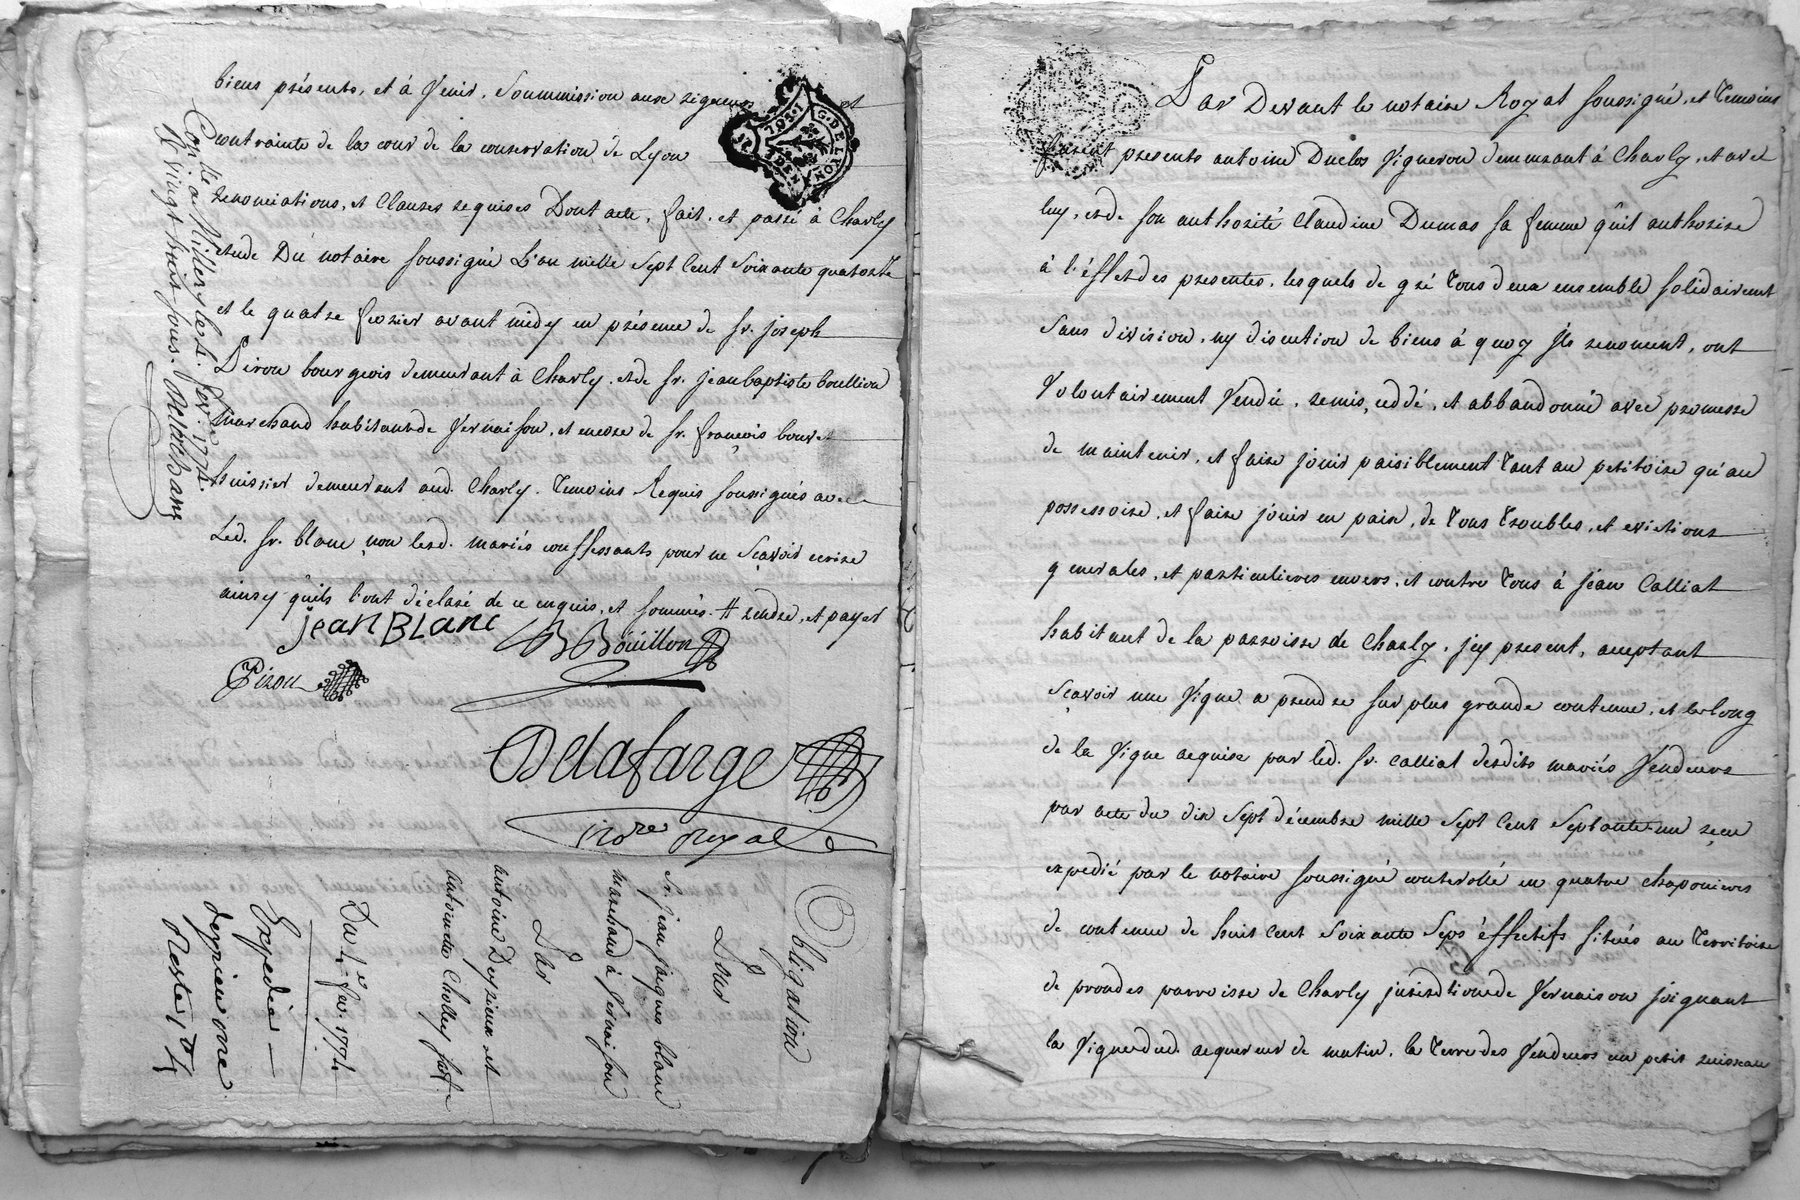 biens présents, et à Venir, Soummission aux rigueurs et
contrainte de la cour de la conservation de Lyon
renonciations, et Clauses requises Dont acte, fait, et passé à Charly
etude Du notaire soussigné L'an mille sept cent soixante quatorze
et le quatre fevrier avant midy en présence de sr. joseph
Pirou bourgeois demeurant à Charly, et de sr. jean baptiste boullion
marchand habitant de Vernaison, et encore de sr. françois bouvet
huissier demeurant aud. Charly. Temoins Requis soussignés avec
Led. sr. blanc non lesd. mariés confessants pour ne sçavoir ecrire
ainsy qu'ils l'ont déclaré de ce enquis, et sommés. # rendre, et payer
jean BLanc
B Bouillon
Pirou
Delafarge
no.re royal
Con.lé a Millery le 2. fev. 1774.
R vingt huit sous.
Obligation
Pour
sr. jean jaques blanc
marchand à Vernaison
Par
antoine Deyrieux et
antoinete Cholley sa f.e
Du 4.e fev. 1774
Expediée
G. DE LYON
Par Devant le notaire Royal soussigné, et Temoins
furent presents antoine Duclos Vigneron demeurant à Charly, et avec
luy, et de son authorité Claudine Dumas sa femme qu'il authorise
à l'éffet des presentes, lesquels de gré Tous deux ensemble solidairement
sans division, ny discution de biens à quoy ils renoncent, ont
Volontairement Vendù, remis, ceddé, et abbandonné avec promesse
de maintenir, et faire jouir paisiblement Tant au petitoire qu'au
possessoire, et faire jouir en paix, de Tous Troubles, et evictions
generales, et particulieres envers, et contre Tous à jean Calliat
habitant de la parroisse de Charly, jcy present, acceptant
sçavoir une Vigne a prendre sur plus grande contenue, et le long
de la Vigne acquise par led. sr. Calliat desdits mariés Vendeurs
par acte du dix sept décembre mille sept cent septante un reçu
expedié par le notaire soussigné controllé en quatre chaponieres
de contenue de huit cent soixante seps éffectifs situés au Territoire
de prondes parroisse de Charly jurisdiction de Vernaison joignant
la Vigne dud. acquereur de matin, la Terre des Vendeurs un petit ruisseau